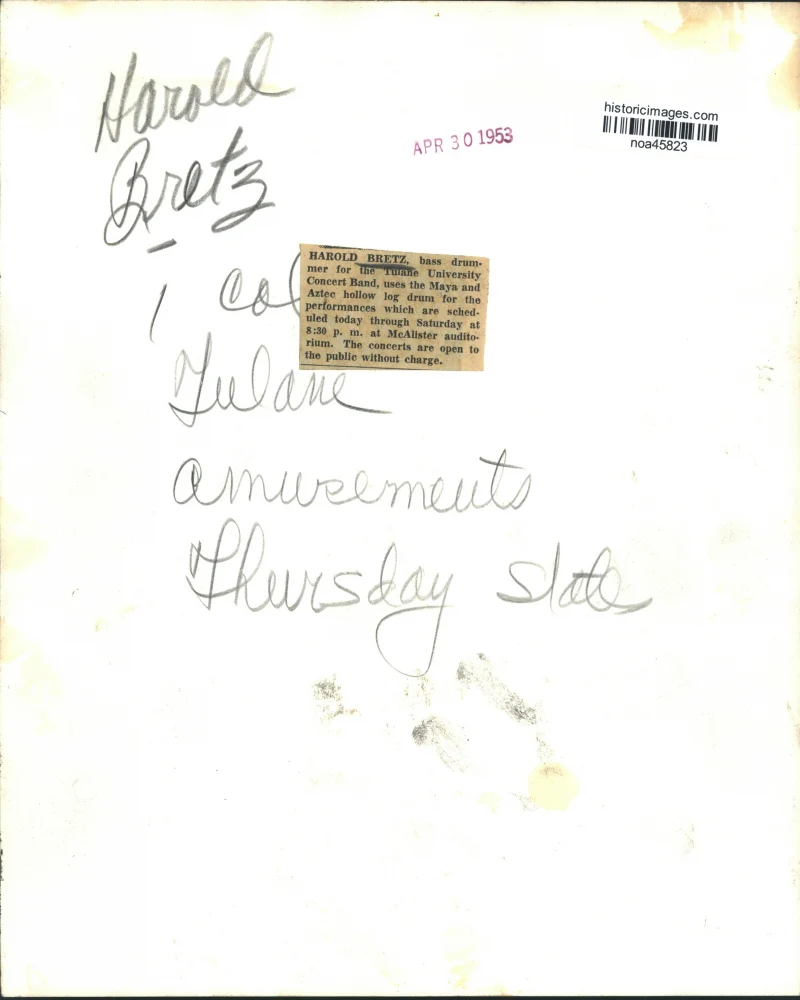 Harold
Bretz
APR 30 1953
historicimages.com
noa45823
HAROLD BRETZ, bass drum-
mer for the Tulane University
Concert Band, uses the Maya and
Aztec hollow log drum for the
performances which are sched-
uled today through Saturday at
8:30 p. m. at McAlister audito-
rium. The concerts are open to
the public without charge.
1 col
Tulane
amusements
Thursday state